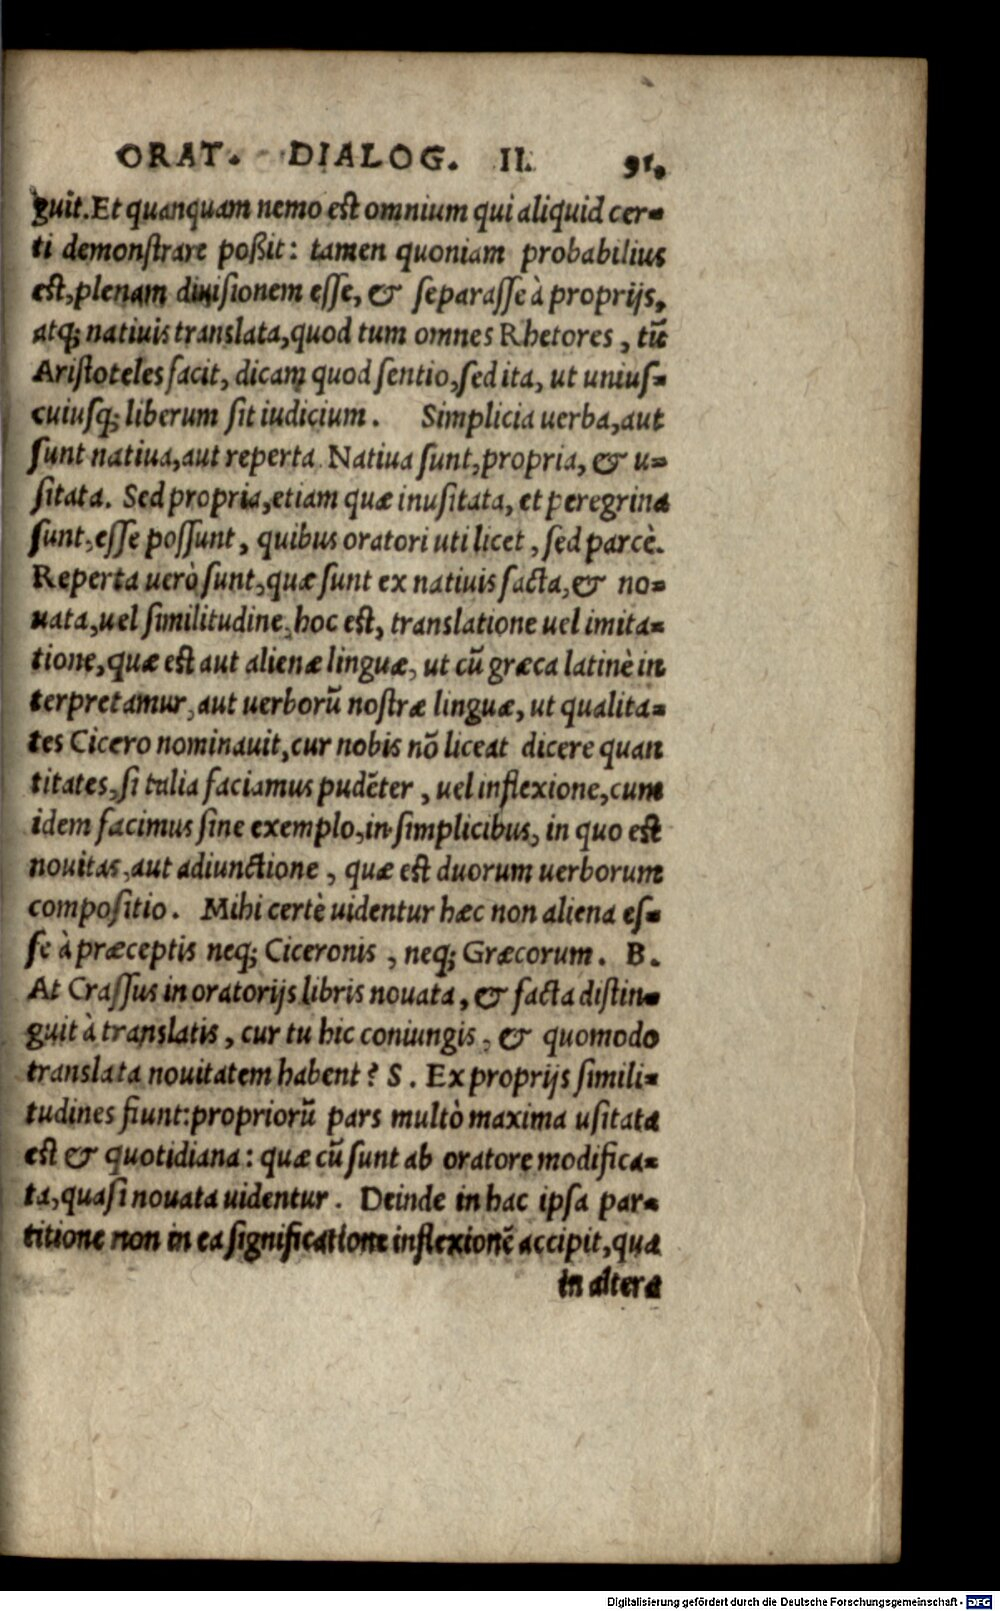 ORAT. DIALOG. II. 91.
guit. Et quanquam nemo est omnium qui aliquid cer-
ti demonstrare poßit: tamen quoniam probabilius
est, plenam diuisionem esse, & separasse à proprijs,
atq; natiuis translata, quod tum omnes Rhetores, tū
Aristoteles facit, dicam quod sentio, sed ita, ut unius-
cuiusq; liberum sit iudicium. Simplicia uerba, aut
sunt natiua, aut reperta. Natiua sunt, propria, & u-
sitata. Sed propria, etiam quæ inusitata, et peregrina
sunt, esse possunt, quibus oratori uti licet, sed parcè.
Reperta uerò sunt, quæ sunt ex natiuis facta, & no-
uata, uel similitudine, hoc est, translatione uel imita-
tione, quæ est aut alienæ linguæ, ut cū græca latinè in
terpretamur, aut uerborū nostræ linguæ, ut qualita-
tes Cicero nominauit, cur nobis nō liceat dicere quan
titates, si talia faciamus pudēter, uel inflexione, cum
idem facimus sine exemplo, in simplicibus, in quo est
nouitas, aut adiunctione, quæ est duorum uerborum
compositio. Mihi certè uidentur hæc non aliena es-
se à præceptis neq; Ciceronis, neq; Græcorum. B.
At Crassus in oratorijs libris nouata, & facta distin-
guit à translatis, cur tu hic coniungis, & quomodo
translata nouitatem habent? S. Ex proprijs simili-
tudines fiunt: propriorū pars multò maxima usitata
est & quotidiana: quæ cū sunt ab oratore modifica-
ta, quasi nouata uidentur. Deinde in hac ipsa par-
titione non in ea significatione inflexionē accipit, qua
in altera
Digitalisierung gefördert durch die Deutsche Forschungsgemeinschaft - DFG